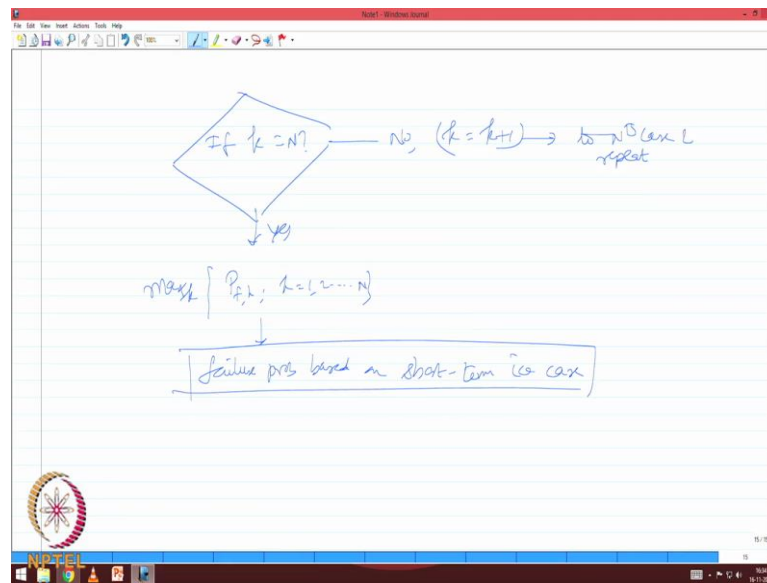 Note1 - Windows Journal
File Edit View Insert Actions Tools Help
If k = N?
No, (k = k+1) → to N B case &
repeat
yes
max { P f,k ; k = 1, 2 .... N }
failure prob based on short-term ice case
NPTEL
15